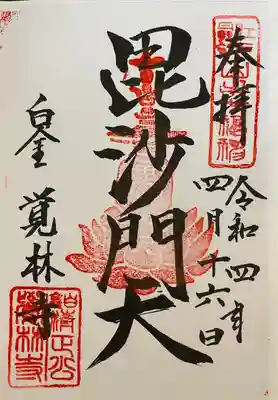 奉拝
令和四年
四月十六日
毘沙門天
白金 覚林寺